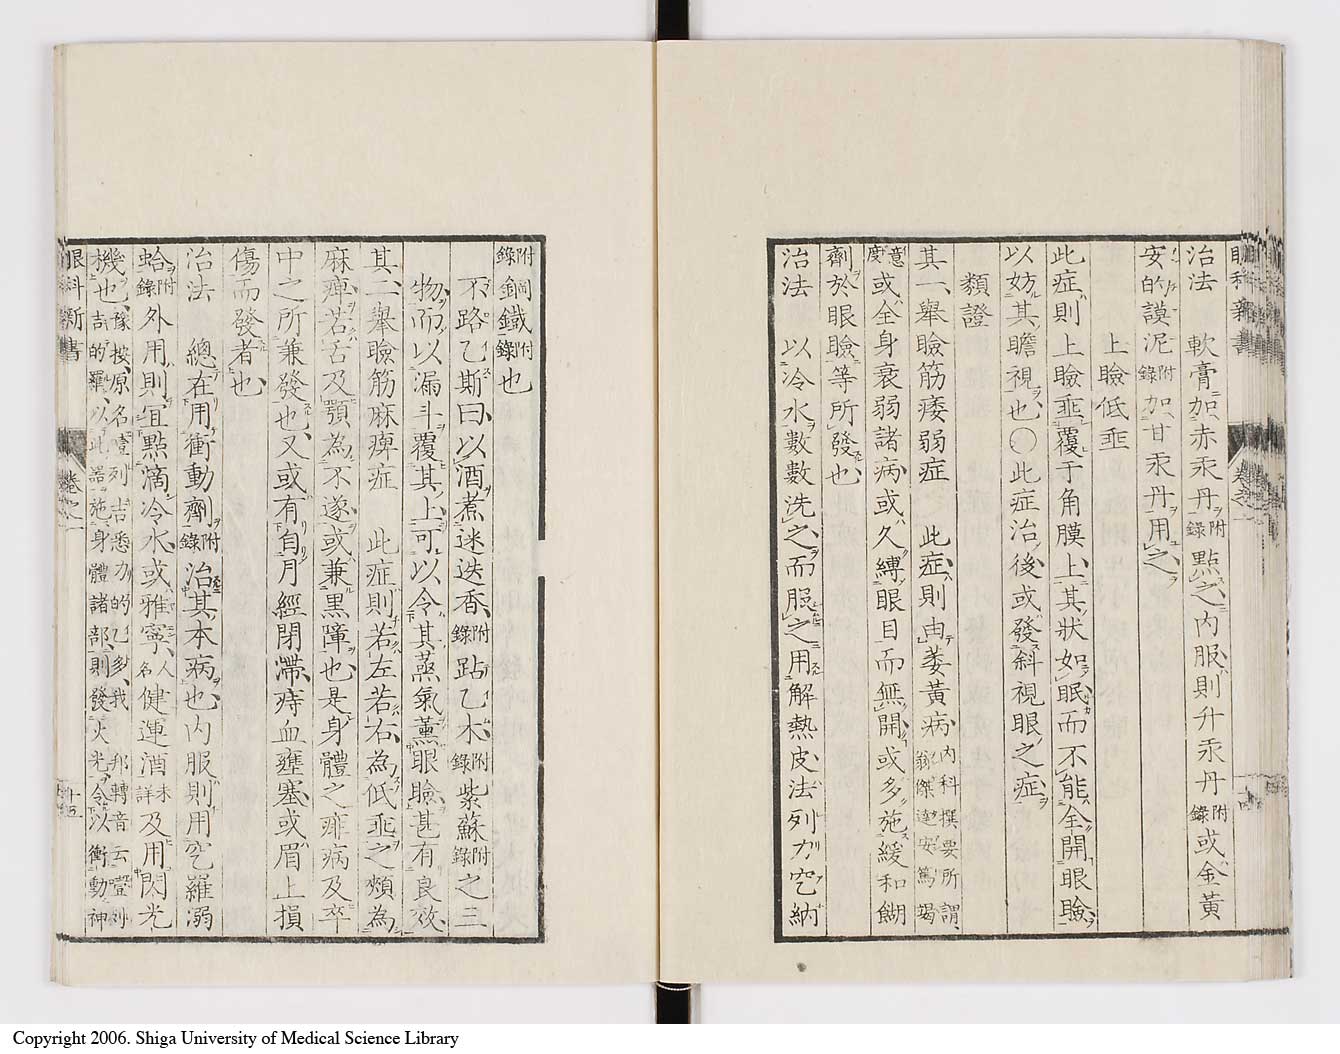 眼科新書 卷之一
治法 軟膏加赤汞丹附錄點之內服則升汞丹附錄或金黃
安的謨泥附錄加甘汞丹用之
上瞼低垂
此症則上瞼垂覆于角膜上其狀如眠而不能全開眼瞼
以妨其瞻視也〇此症治後或發斜視眼之症
類證
其一、舉瞼筋痿弱症 此症則由萎黃病內科撰要所謂、翕傑違安篤竭
意度或全身衰弱諸病或久縛眼目而無開或多施緩和餬
劑於眼瞼等所發也
治法 以冷水數數洗之而服之用解熱皮法列力乞納
附錄鋼鐵附錄也
不路乙斯曰以酒煮迷迭香附錄跕乙木附錄紫蘇附錄之三
物而以漏斗覆其上可以令其蒸氣薰眼瞼甚有良效
其二舉瞼筋麻痺症 此症則若左若右為低垂之頰為
麻痺若舌及顎為不遂或兼黑障也是身體之痱病及卒
中之所兼發也又或有自月經閉滯痔血壅塞或眉上損
傷而發者也
治法 總在用衝動劑附錄治其本病也內服則用乞羅溺
蛤附錄外用則宜點滴冷水或雅寧人名健運酒未詳及用閃光
機也豫按原名噎列吉悉力的乙多我邦轉音云噎列吉的羅以此器施身體諸部則發火光令以衝動神
眼科新書 卷之一 十五
Copyright 2006. Shiga University of Medical Science Library